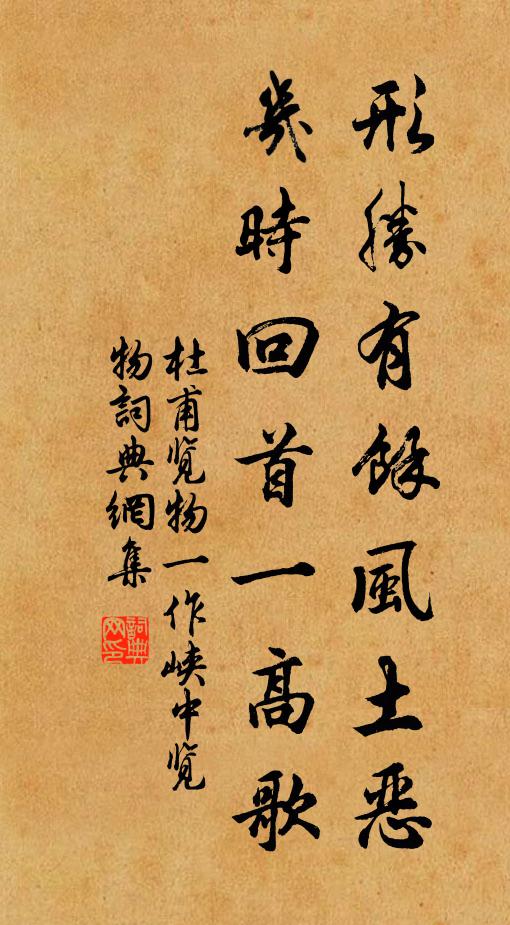 形勝有餘風土惡
幾時回首一高歌
杜甫覽物一作峽中覽
物詞典網集
詞典網印